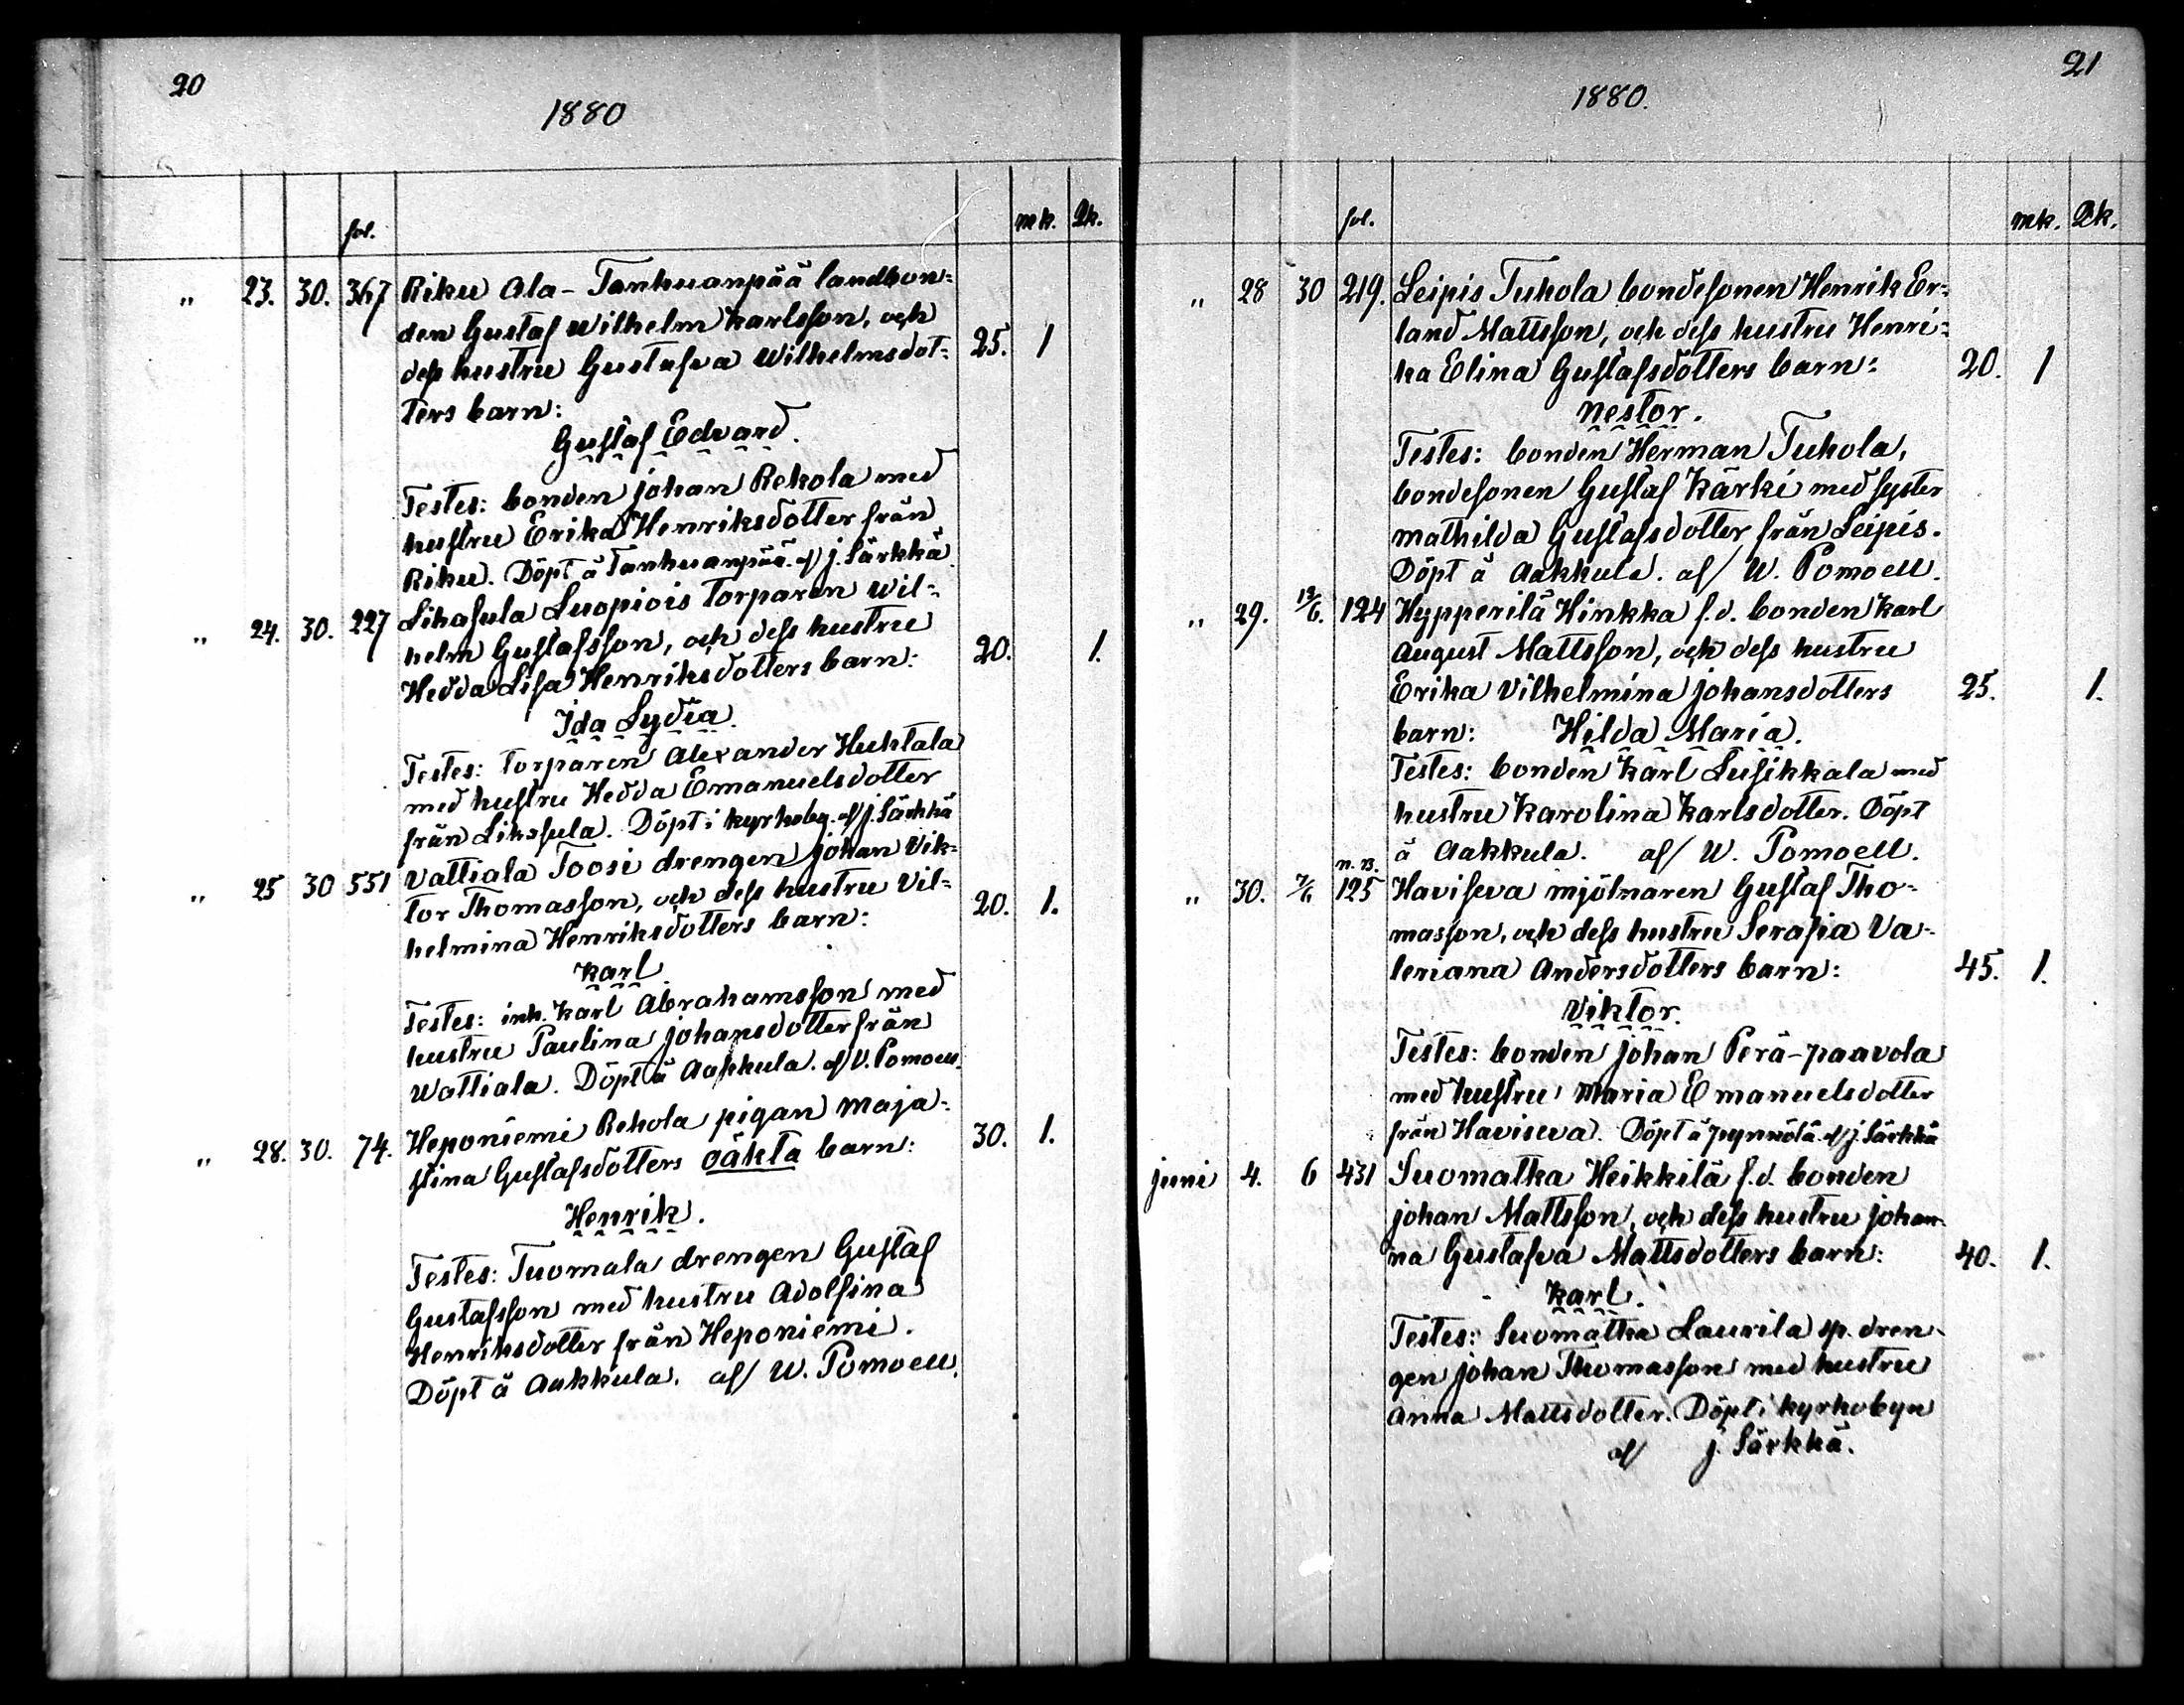 20
1880
fol. mk. Qk.
" 23. 30. 367 Riku Ala-Tanhuanpää landbon=
den Gustaf Wilhelm Karlsson, och
dess hustru Gustafva Wilhelmsdot= 25. 1
ters barn:
Gustaf Edvard.
Testes: bonden Johan Rekola med
hustru Erika Henriksdotter från
Riku. Döpt å Tanhuanpää af J. Särkkä.
" 24. 30. 227 Lihasula Luopiois torparen Wil=
helm Gustafsson, och dess hustru
Hedda Lisa Henriksdotters barn: 20. 1.
Ida Lydia.
Testes: torparen Alexander Huhtala
med hustru Hedda Emanuelsdotter
från Lihasula. Döpt i kyrkoby. af J. Särkkä
" 25 30 551 Vattiala Toosi drengen Johan Vik=
tor Thomasson, och dess hustru Vil=
helmina Henriksdotters barn: 20. 1.
Karl.
Testes: inh. Karl Abrahamsson med
hustru Paulina Johansdotter från
Wattiala. Döpt å Aakkula. af V. Pomoell.
" 28. 30. 74. Heponiemi Rekola pigan Maja=
stina Gustafsdotters oäkta barn: 30. 1.
Henrik.
Testes: Tuomala drengen Gustaf
Gustafsson med hustru Adolfina
Henriksdotter från Heponiemi.
Döpt å Aakkula. af W. Pomoell.
21
1880.
fol. mk. Qk.
" 28 30 219. Leipis Tuhola bondesonen Henrik Er=
land Mattsson, och dess hustru Henri=
ka Elina Gustafsdotters barn: 20. 1
Nestor.
Testes: bonden Herman Tuhola,
bondesonen Gustaf Kärki med syster
Mathilda Gustafsdotter från Leipis.
Döpt å Aakkula. af W. Pomoell.
" 29. 12/6. 124 Hypperilä Hinkka f.d. bonden Karl
August Mattsson, och dess hustru
Erika Vilhelmina Johansdotters 25. 1.
barn: Hilda Maria.
Testes: bonden Karl Lusikkala med
hustru Karolina Karlsdotter. Döpt
å Aakkula. af W. Pomoell.
n. B.
" 30. 7/6 125 Haviseva mjölnaren Gustaf Tho=
masson, och dess hustru Serafia Va=
leriana Andersdotters barn: 45. 1.
Viktor.
Testes: bonden Johan Perä-paavola
med hustru Maria Emanuelsdotter
från Haviseva. Döpt å Pynnölä af J. Särkkä
Juni 4. 6 431 Suomatka Heikkilä f.d. bonden
Johan Mattsson, och dess hustru Johan
na Gustafva Mattsdotters barn: 40. 1.
Karl.
Testes: Suomatka Laurila sp. dren-
gen Johan Thomasson med hustru
Anna Mattsdotter. Döpt i kyrkobyn
af J. Särkkä.